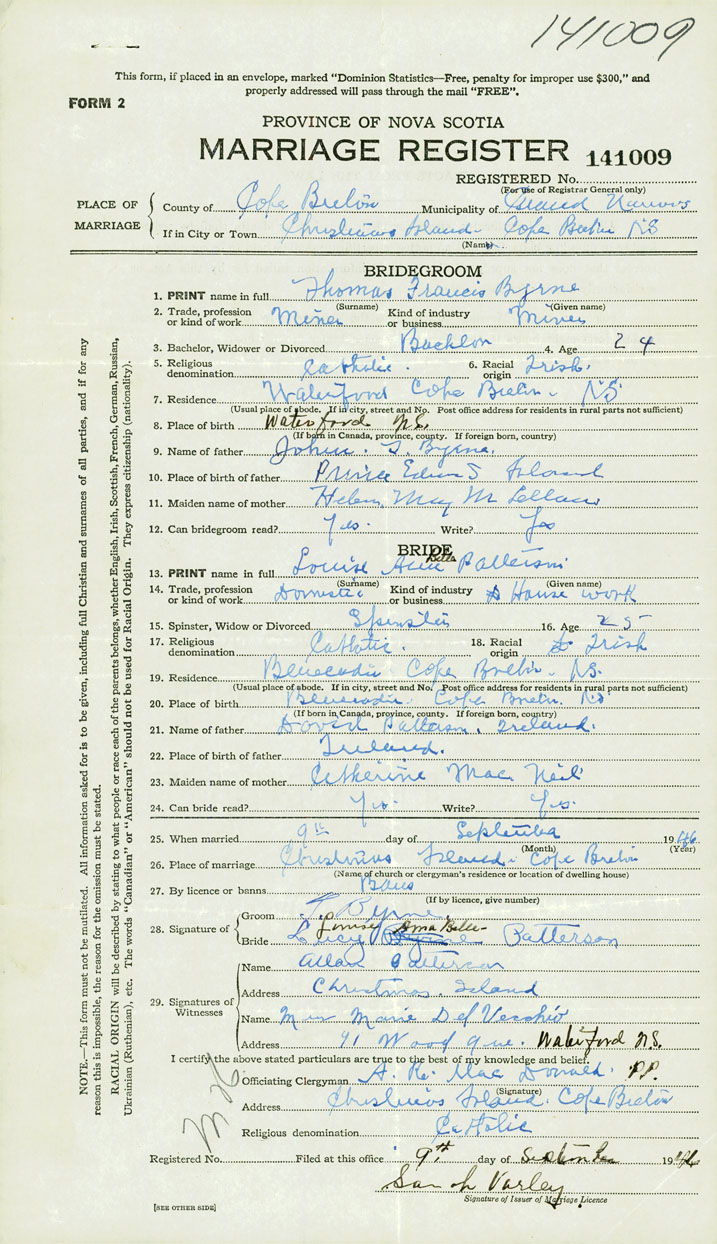 141009
This form, if placed in an envelope, marked "Dominion Statistics—Free, penalty for improper use $300," and
properly addressed will pass through the mail "FREE".
FORM 2
PROVINCE OF NOVA SCOTIA
MARRIAGE REGISTER 141009
REGISTERED No.
(For Use of Registrar General only)
PLACE OF MARRIAGE
County of Cape Breton Municipality of Grand Narrows
If in City or Town Christmas Island - Cape Breton NS
(Name)
BRIDEGROOM
1. PRINT name in full Thomas Francis Byrne
(Surname) (Given name)
2. Trade, profession or kind of work Miner Kind of industry or business Miner
3. Bachelor, Widower or Divorced Bachlor 4. Age 24
5. Religious denomination Catholic. 6. Racial origin Irish.
7. Residence Waterford Cape Breton. NS.
(Usual place of abode. If in city, street and No. Post office address for residents in rural parts not sufficient)
8. Place of birth Waterford N.S.
(If born in Canada, province, county. If foreign born, country)
9. Name of father John. Byrne.
10. Place of birth of father Prince Edward Island
11. Maiden name of mother Helen May
12. Can bridegroom read? Yes. Write? Yes
BRIDE
Bella
13. PRINT name in full Louise Patterson
(Surname) (Given name)
14. Trade, profession or kind of work Domestic Kind of industry or business House work
15. Spinster, Widow or Divorced Spinster 16. Age 25
17. Religious denomination Catholic. 18. Racial origin Irish
19. Residence Benacadie Cape Breton. NS.
(Usual place of abode. If in city, street and No. Post office address for residents in rural parts not sufficient)
20. Place of birth Benacadie. Cape Breton. NS
(If born in Canada, province, county. If foreign born, country)
21. Name of father David Patterson. Ireland.
22. Place of birth of father Ireland.
23. Maiden name of mother Catherine Mac Neil
24. Can bride read? Yes. Write? Yes.
25. When married 9th day of September 1946
(Month) (Year)
26. Place of marriage Christmas Island - Cape Breton
(Name of church or clergyman's residence or location of dwelling house)
27. By licence or banns Bans
(If by licence, give number)
28. Signature of
Groom T. Byrne.
Louise Anna Bella
Bride Patterson
29. Signatures of Witnesses
Name Allan Patterson
Address Christmas. Island
Name Marie Del Vecchio
Address 41 Wood Ave. Waterford N.S.
I certify the above stated particulars are true to the best of my knowledge and belief.
Officiating Clergyman A. R. Mac Donald. P.P.
(Signature)
Address Christmas Island. Cape Breton
Religious denomination Catholic
Registered No. Filed at this office 9th day of September 1946
Sarah Varley
Signature of Issuer of Marriage Licence
[SEE OTHER SIDE]
NOTE.—This form must not be mutilated. All information asked for is to be given, including full Christian and surnames of all parties, and if for any
reason this is impossible, the reason for the omission must be stated.
RACIAL ORIGIN will be described by stating to what people or race each of the parents belongs, whether English, Irish, Scottish, French, German, Russian,
Ukrainian (Ruthenian), etc. The words "Canadian" or "American" should not be used for Racial Origin. They express citizenship (nationality).